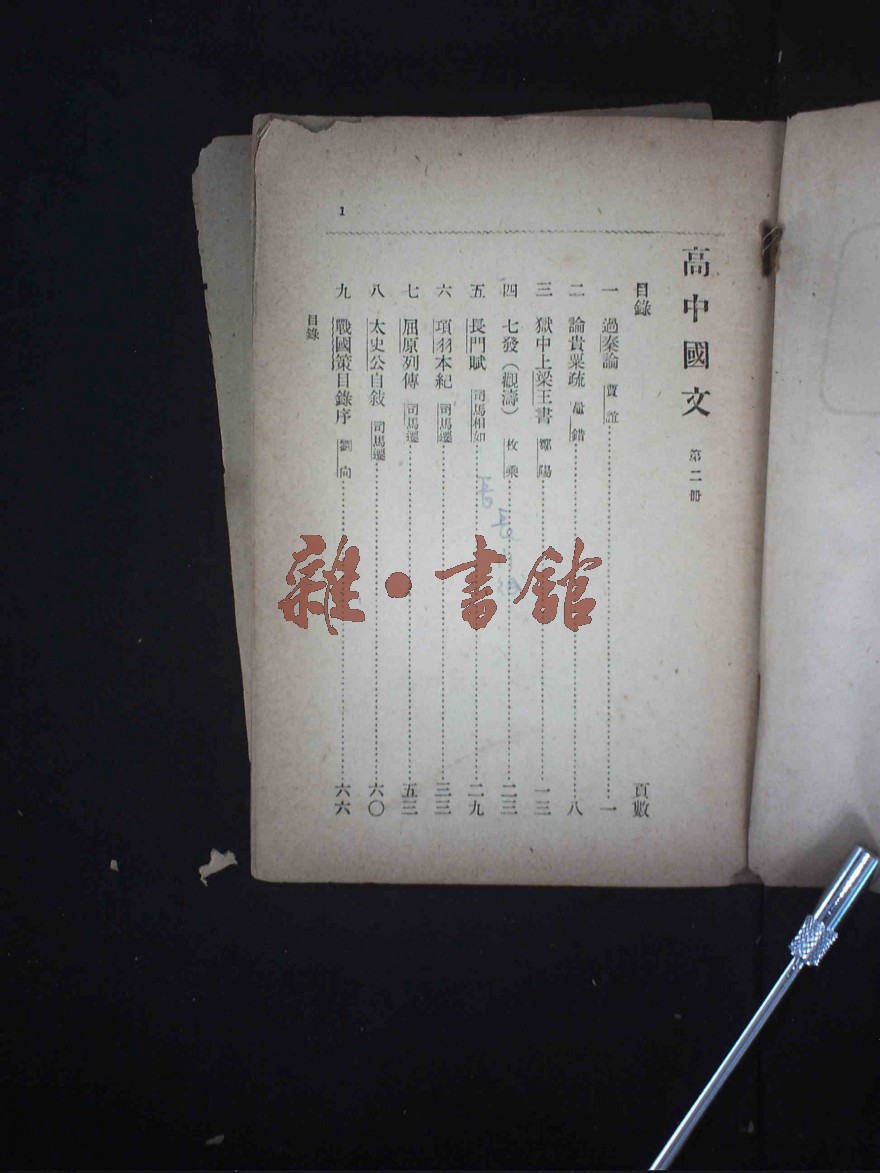 高中國文 第二冊
目錄 頁數
一 過秦論 賈誼 一
二 論貴粟疏 鼂錯 八
三 獄中上梁王書 鄒陽 一三
四 七發（觀濤） 枚乘 二三
五 長門賦 司馬相如 二九
六 項羽本紀 司馬遷 三三
七 屈原列傳 司馬遷 五三
八 太史公自敍 司馬遷 六〇
九 戰國策目錄序 劉向 六六
目錄
1
雜·書館